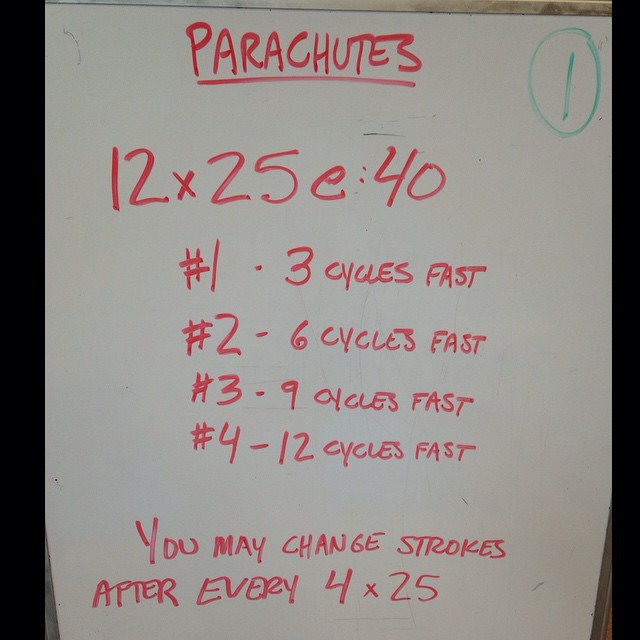 PARACHUTES
1
12x25 @ :40
#1 - 3 CYCLES FAST
#2 - 6 CYCLES FAST
#3 - 9 CYCLES FAST
#4 - 12 CYCLES FAST
YOU MAY CHANGE STROKES
AFTER EVERY 4 x 25